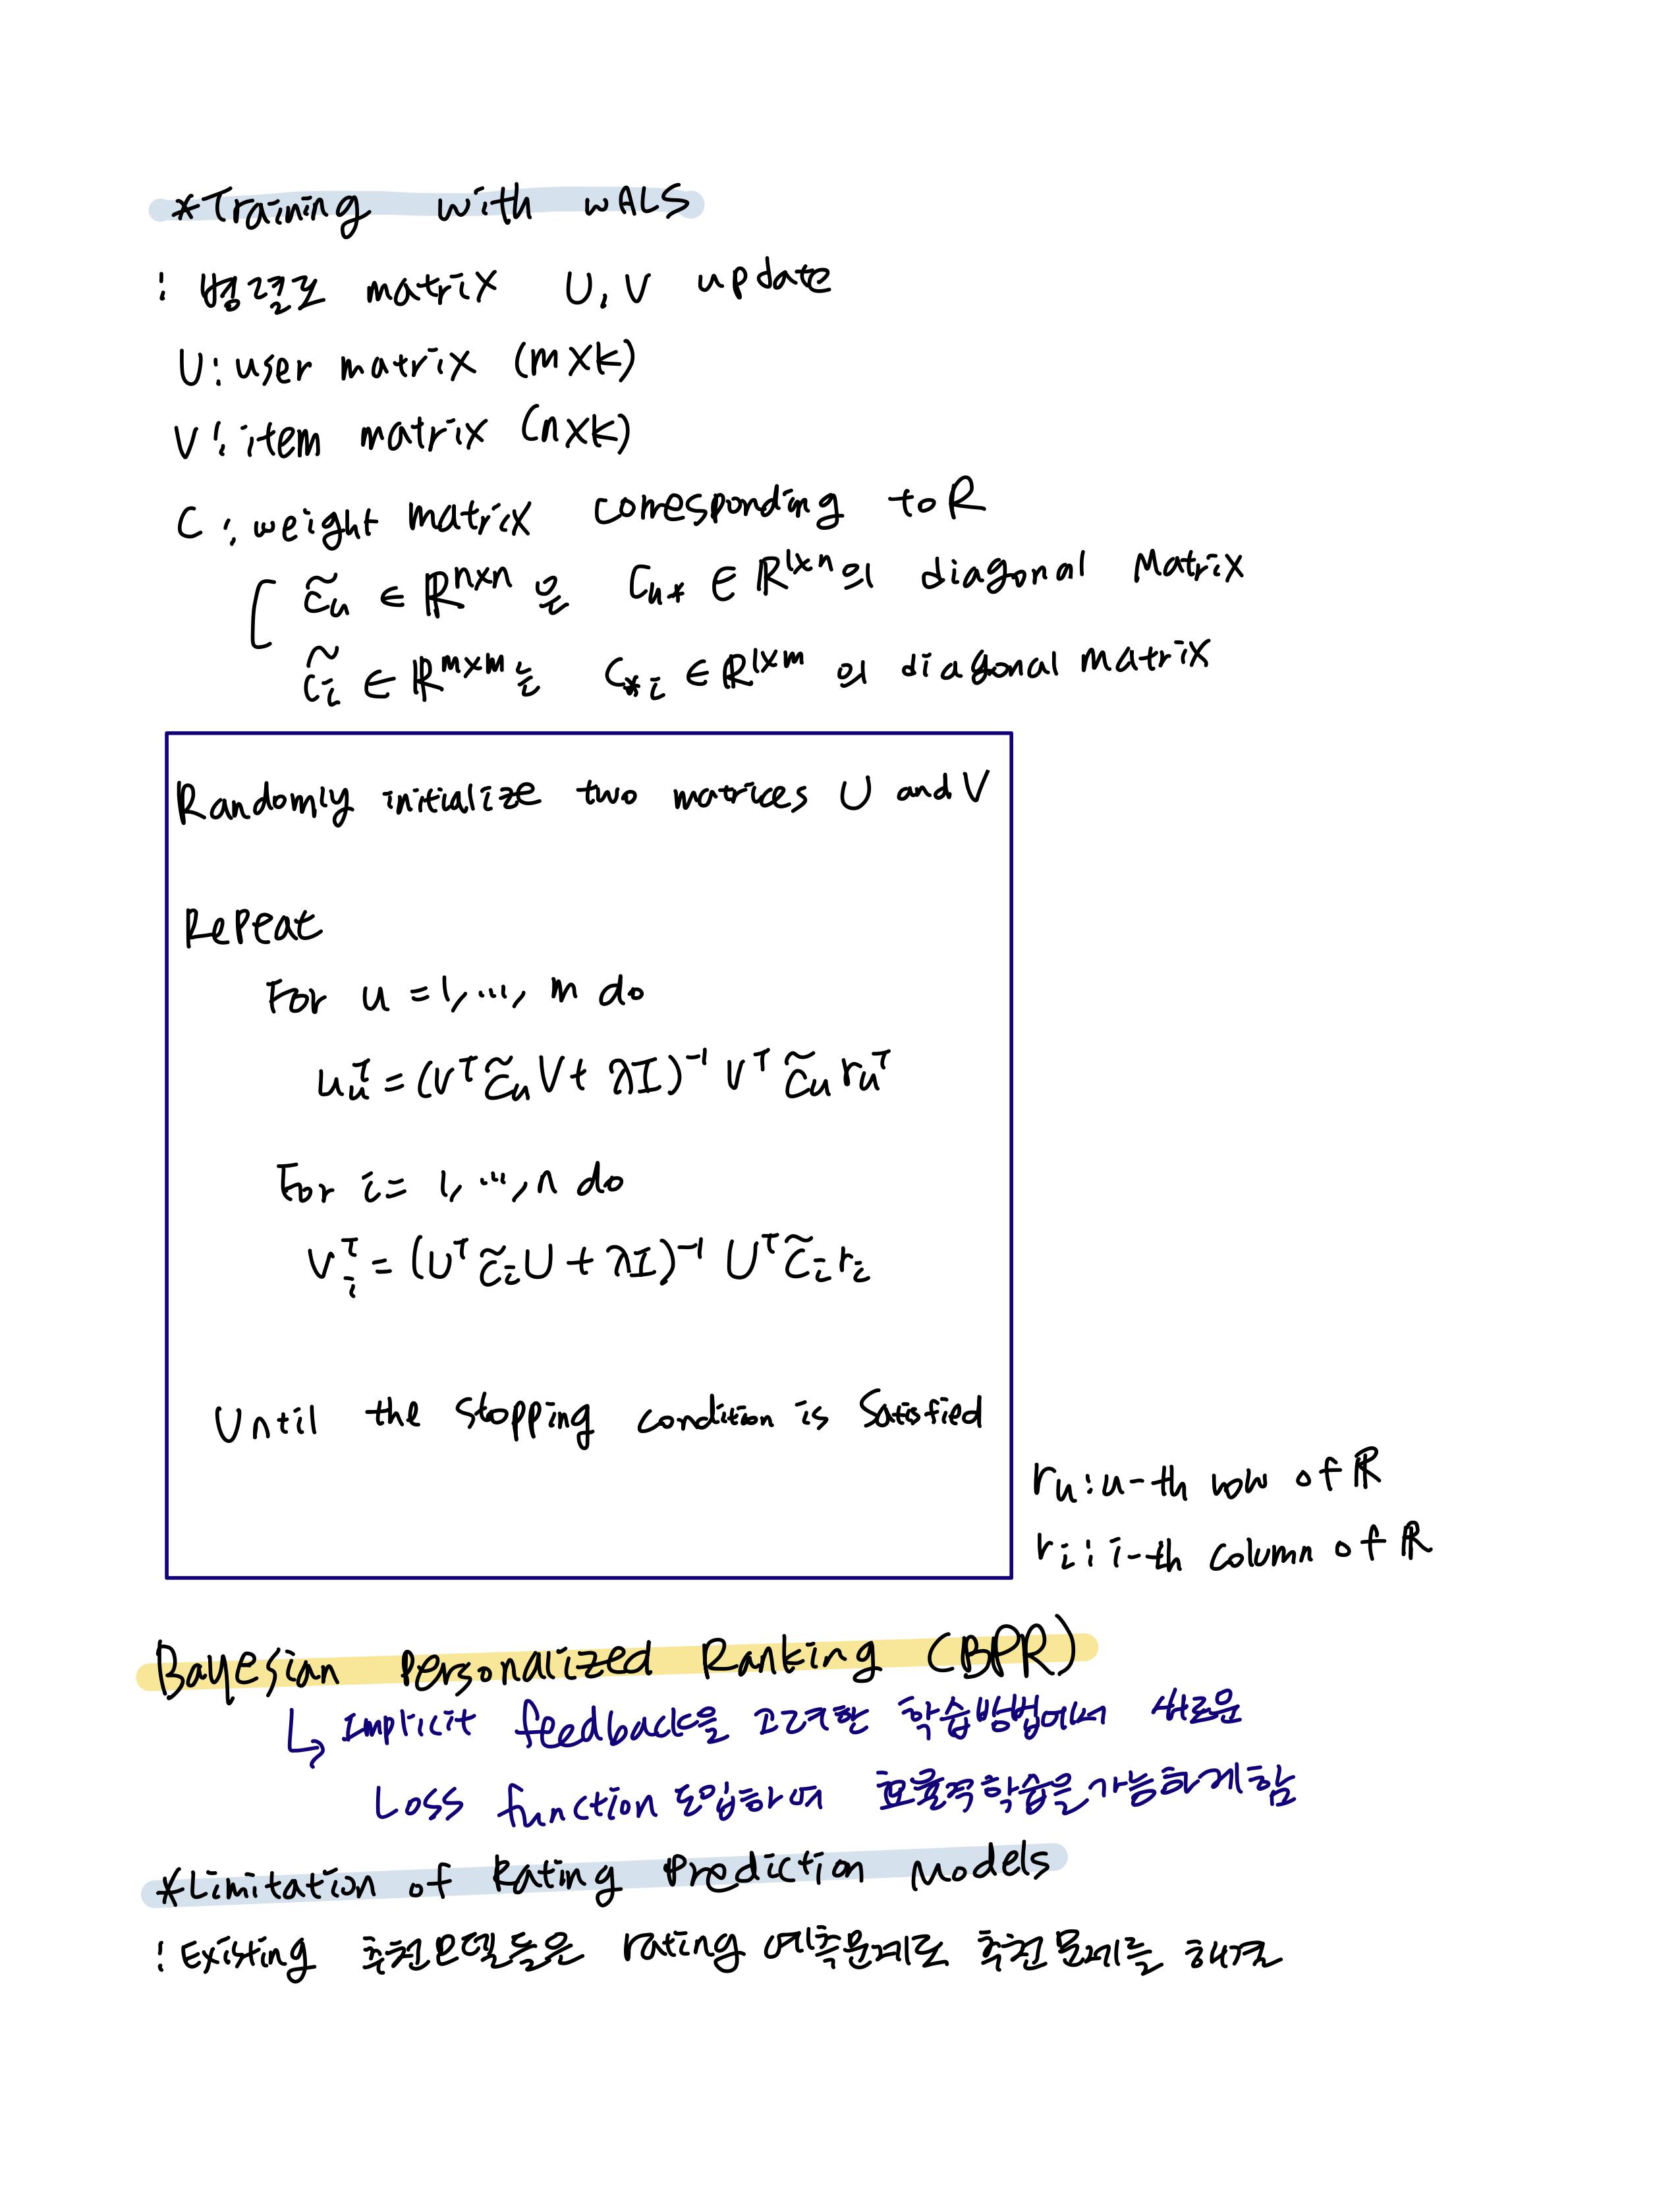 *Training with wALS
: 병렬로 matrix U, V update
U: user matrix (m×k)
V: item matrix (n×k)
C: weight matrix corresponding to R
c̃ᵤ ∈ ℝⁿˣⁿ은 Cᵤ* ∈ ℝ¹ˣⁿ의 diagonal Matrix
c̃ᵢ ∈ ℝᵐˣᵐ는 C*ᵢ ∈ ℝ¹ˣᵐ의 diagonal matrix
Randomly initialize two matrices U and V
Repeat
For u = 1, ..., m do
uᵤᵀ = (Vᵀ c̃ᵤ V + λI)⁻¹ Vᵀ c̃ᵤ rᵤᵀ
For i = 1, ..., n do
vᵢᵀ = (Uᵀ c̃ᵢ U + λI)⁻¹ Uᵀ c̃ᵢ rᵢ
Until the stopping condition is Satisfied
rᵤ: u-th row of ℝ
rᵢ: i-th column of ℝ
Bayesian Personalized Ranking (BPR)
↳ Implicit feedback을 고려한 학습방법에서 새로운
Loss function 도입하여 효율적학습을가능하게함
*Limitation of Rating Prediction Models
: Existing 추천모델들은 rating 예측문제로 추천문제를 해결